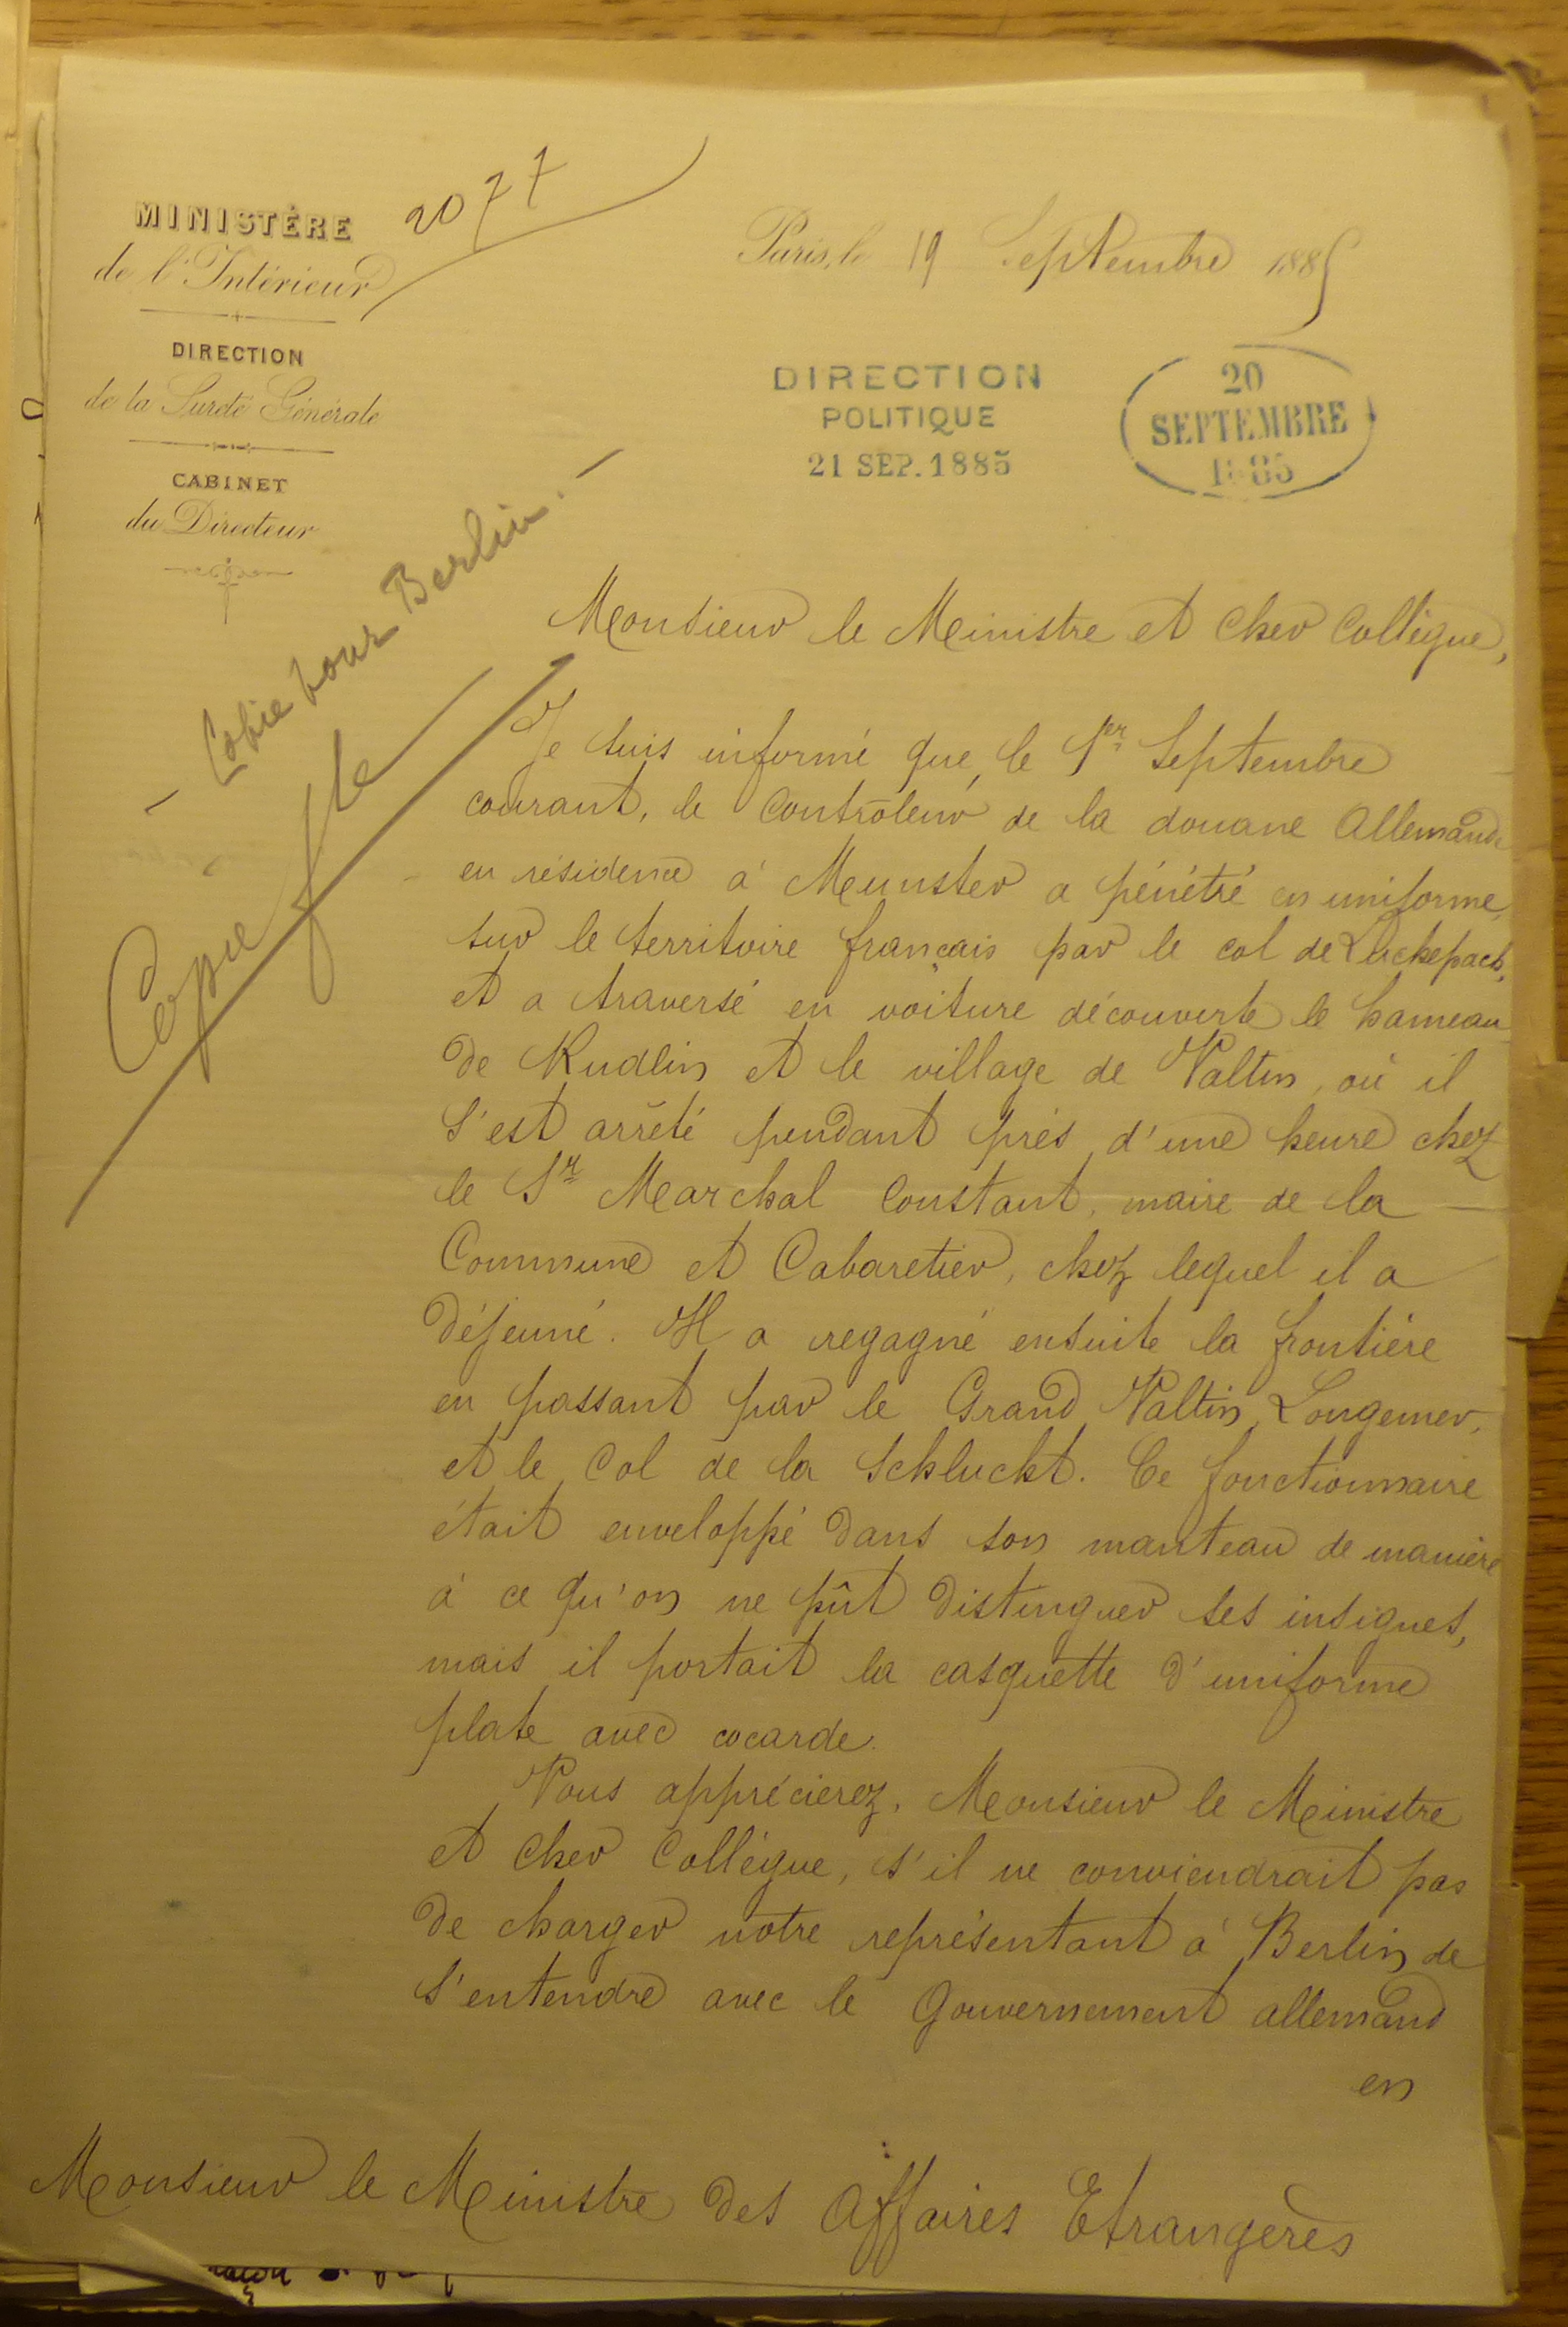 MINISTÈRE
de l'Intérieur
DIRECTION
de la Sureté Générale
CABINET
du Directeur
2077
Paris, le 19 Septembre 1885
DIRECTION
POLITIQUE
21 SEP. 1885
20
SEPTEMBRE
1885
- Copie pour Berlin. -
Copie fte
Monsieur le Ministre et Cher Collègue,
Je suis informé que, le 1er Septembre
courant, le Contrôleur de la douane Allemande
en résidence à Munster a pénétré en uniforme,
sur le territoire français par le col de Luckepach,
et a traversé en voiture découverte le hameau
de Rudlin et le village de Valtin, où il
s'est arrêté pendant près d'une heure chez
le Sr Marchal Constant, maire de la
Commune et Cabaretier, chez lequel il a
déjeuné. Il a regagné ensuite la frontière
en passant par le Grand Valtin, Longemer,
et le Col de la Schluckt. Ce fonctionnaire
était enveloppé dans son manteau de manière
à ce qu'on ne pût distinguer ses insignes,
mais il portait la casquette d'uniforme
plate avec cocarde.
Vous apprécierez, Monsieur le Ministre
et Cher Collègue, s'il ne conviendrait pas
de charger notre représentant à Berlin de
s'entendre avec le Gouvernement allemand
en
Monsieur le Ministre des Affaires Etrangères